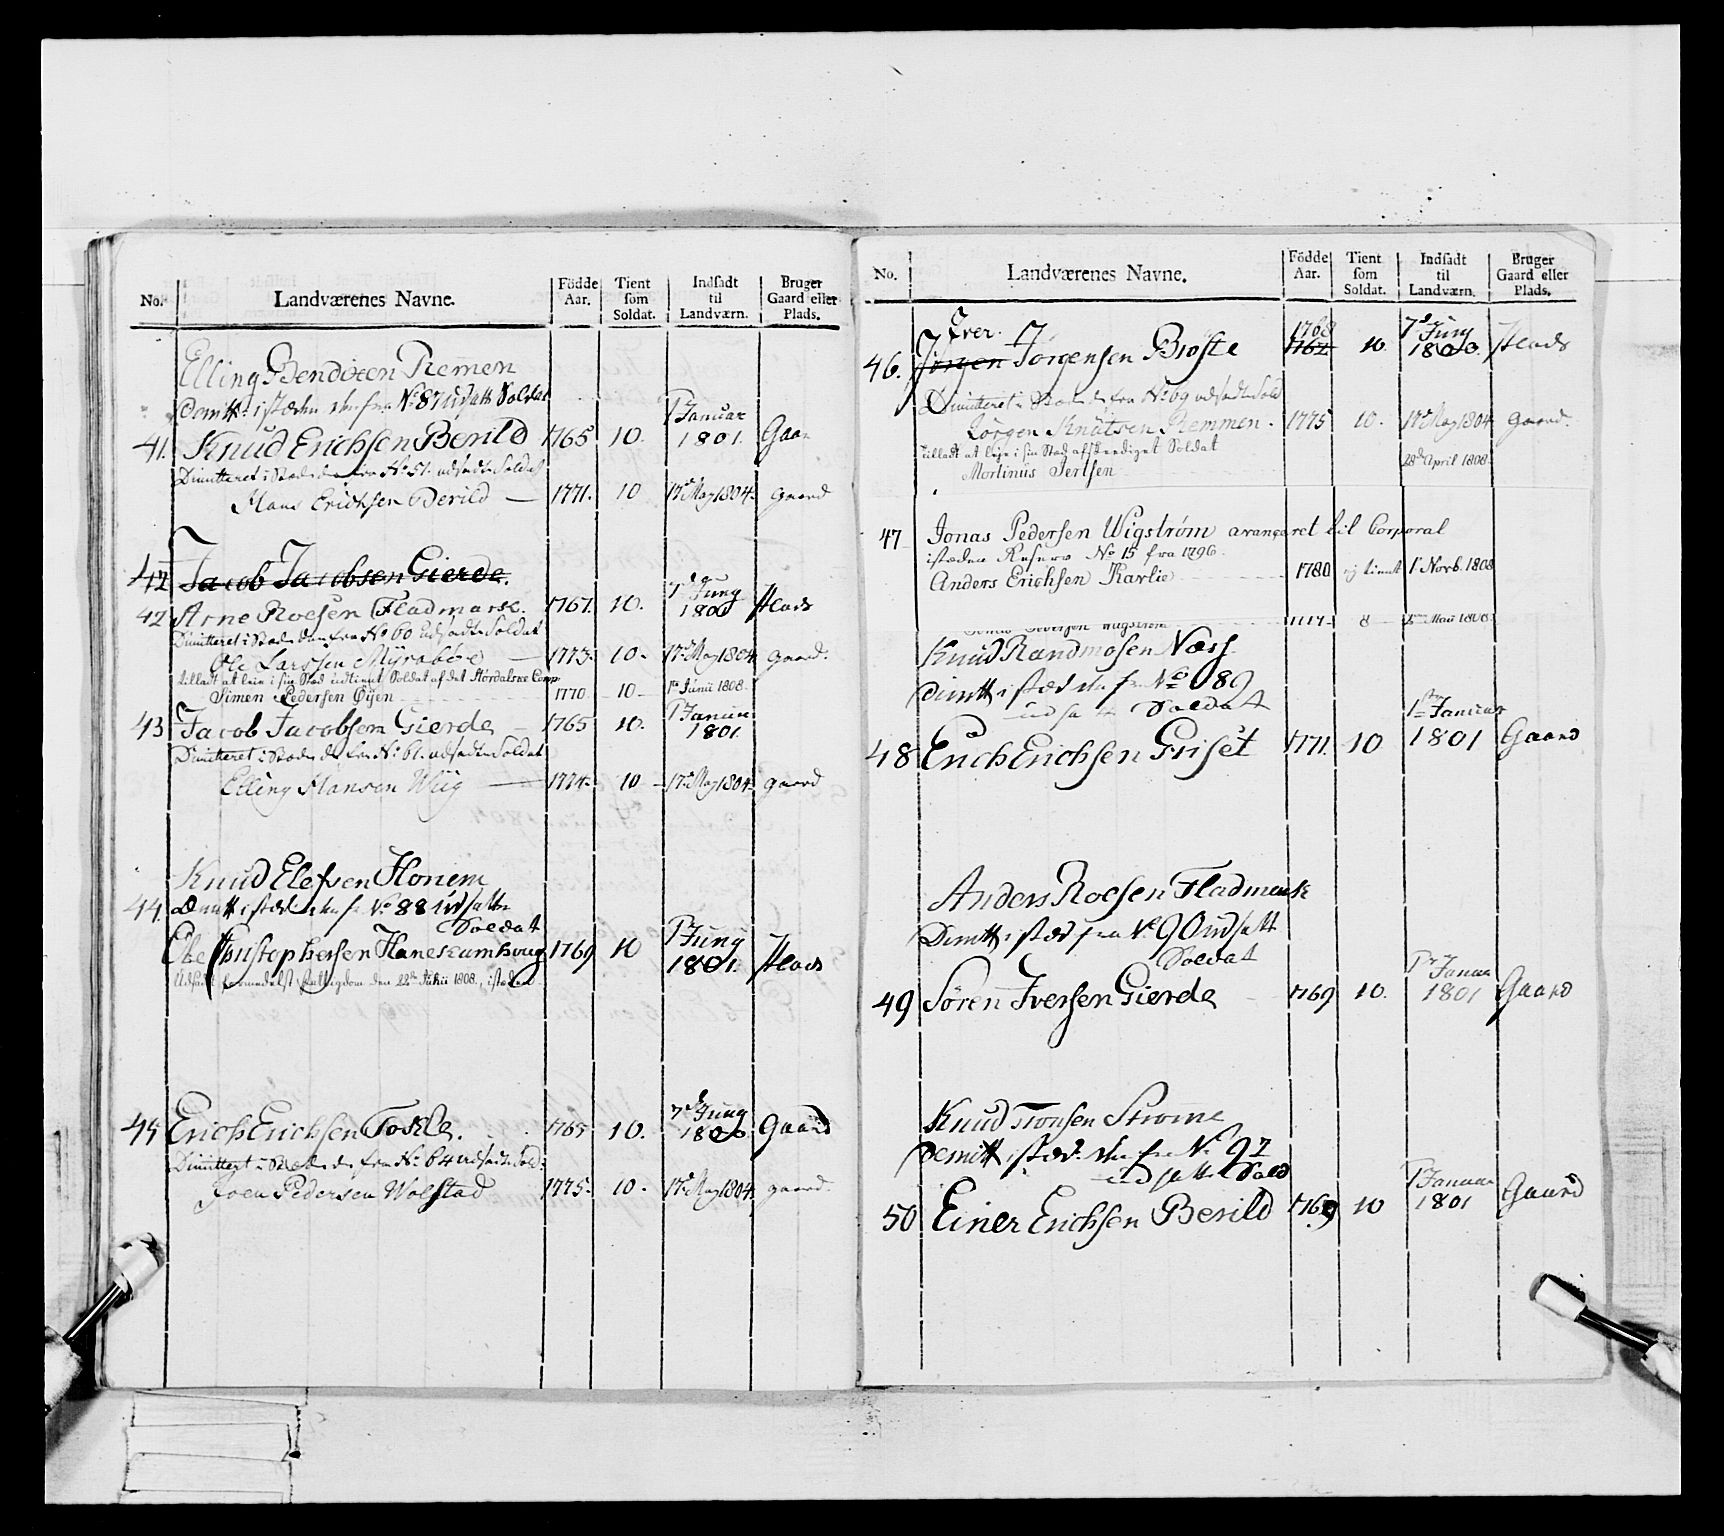 No. Landværenes Navne. Födde Aar. Tient som Soldat. Indsadt til Landværn. Bruger Gaard eller Plads.
Elling Bendixen Remem
Demitt: i stæden fra No 87 udsatt Soldat
41. Knud Erichsen Berild 1765 10. 1 Januar 1801. Gaar
Dimitteret i Stæden fra No 51. udsadte Soldat
Hans Erichsen Berild — 1771. 10 17de May 1804. gaard
42 Jacob Jacobsen Gierde.
42 Arne Roesen Fladmark. 1767. 10. 7de Juny 1800 Plads
Dimitteret i Stæden fra No 60 udsadte Soldat
Ole Larssen Myrabøe — 1773. 10. 17de May 1804 gaard.
tilladt at leie i sin Stad udtient Soldat af det Stordalske Comp
Simen Pedersen Øyen 1770 10 1te Junii 1808.
43 Jacob Jacobsen Gierde 1765 10. 1 Januar 1801.
Dimitteret i Stæden fra No 61. udsadte Soldat
Elling Hansen Wiig — 1774. 10 17de May 1804. gaard
Knud Elefsen Honem
44. Dimitt i stæden fra No 88 udsatte
Soldat
Ole Christophersen Haneskamhoug 1769 10 1 Juny 1801. Plads
Udsadt formedelst Fattigdom den 22de Junii 1808., isteden
45 Erich Erichsen Tokle. 1765 10. 7de Juny 1800 Gaard
Dimitteret i Stæden fra No 64 udsadte Sold.
Joen Pedersen Wolstad 1775. 10. 17de May 1804. gaard.
No. Landværenes Navne. Födde Aar. Tient som Soldat. Indsadt til Landværn. Bruger Gaard eller Plads.
Iver. 1768 7de Juny
46. Jørgen Jørgensen Brøste 1762 10 1800. Plads
Dimitteret i Stæden fra No 69 udsadte Sold
Jørgen Knutsen Remmen. 1775 10. 17de May 1804 gaard.
tilladt at leie i sin Stad afskeediget Soldat
Mortinus Jertsen 28de April 1808.
47 Jonas Pedersen Wigstrøm avanceret til Corporal
isteden Reserv No 15 fra 1796.
Anders Erichsen Karlie 1780 ej tient 1 Novb. 1808
8 Maii 1808.
Knud Randmosen Næss
Dimitt i stæden fra No 89
udsatte Soldat
48 Erich Erichsen Griset 1771. 10 1ste Januar 1801 Gaard
Anders Roesen Fladmark
Dimitt i stæd fra No 90 udsatt
Soldat
49 Søren Iversen Gierde 1769 10. 1 Januar 1801 Gaard
Knud Tronsen Strome
Demitt i stæden fra No 92
udsatte Sold
50 Einer Erichsen Berild 1769 10 1 Januar 1801 Gaard